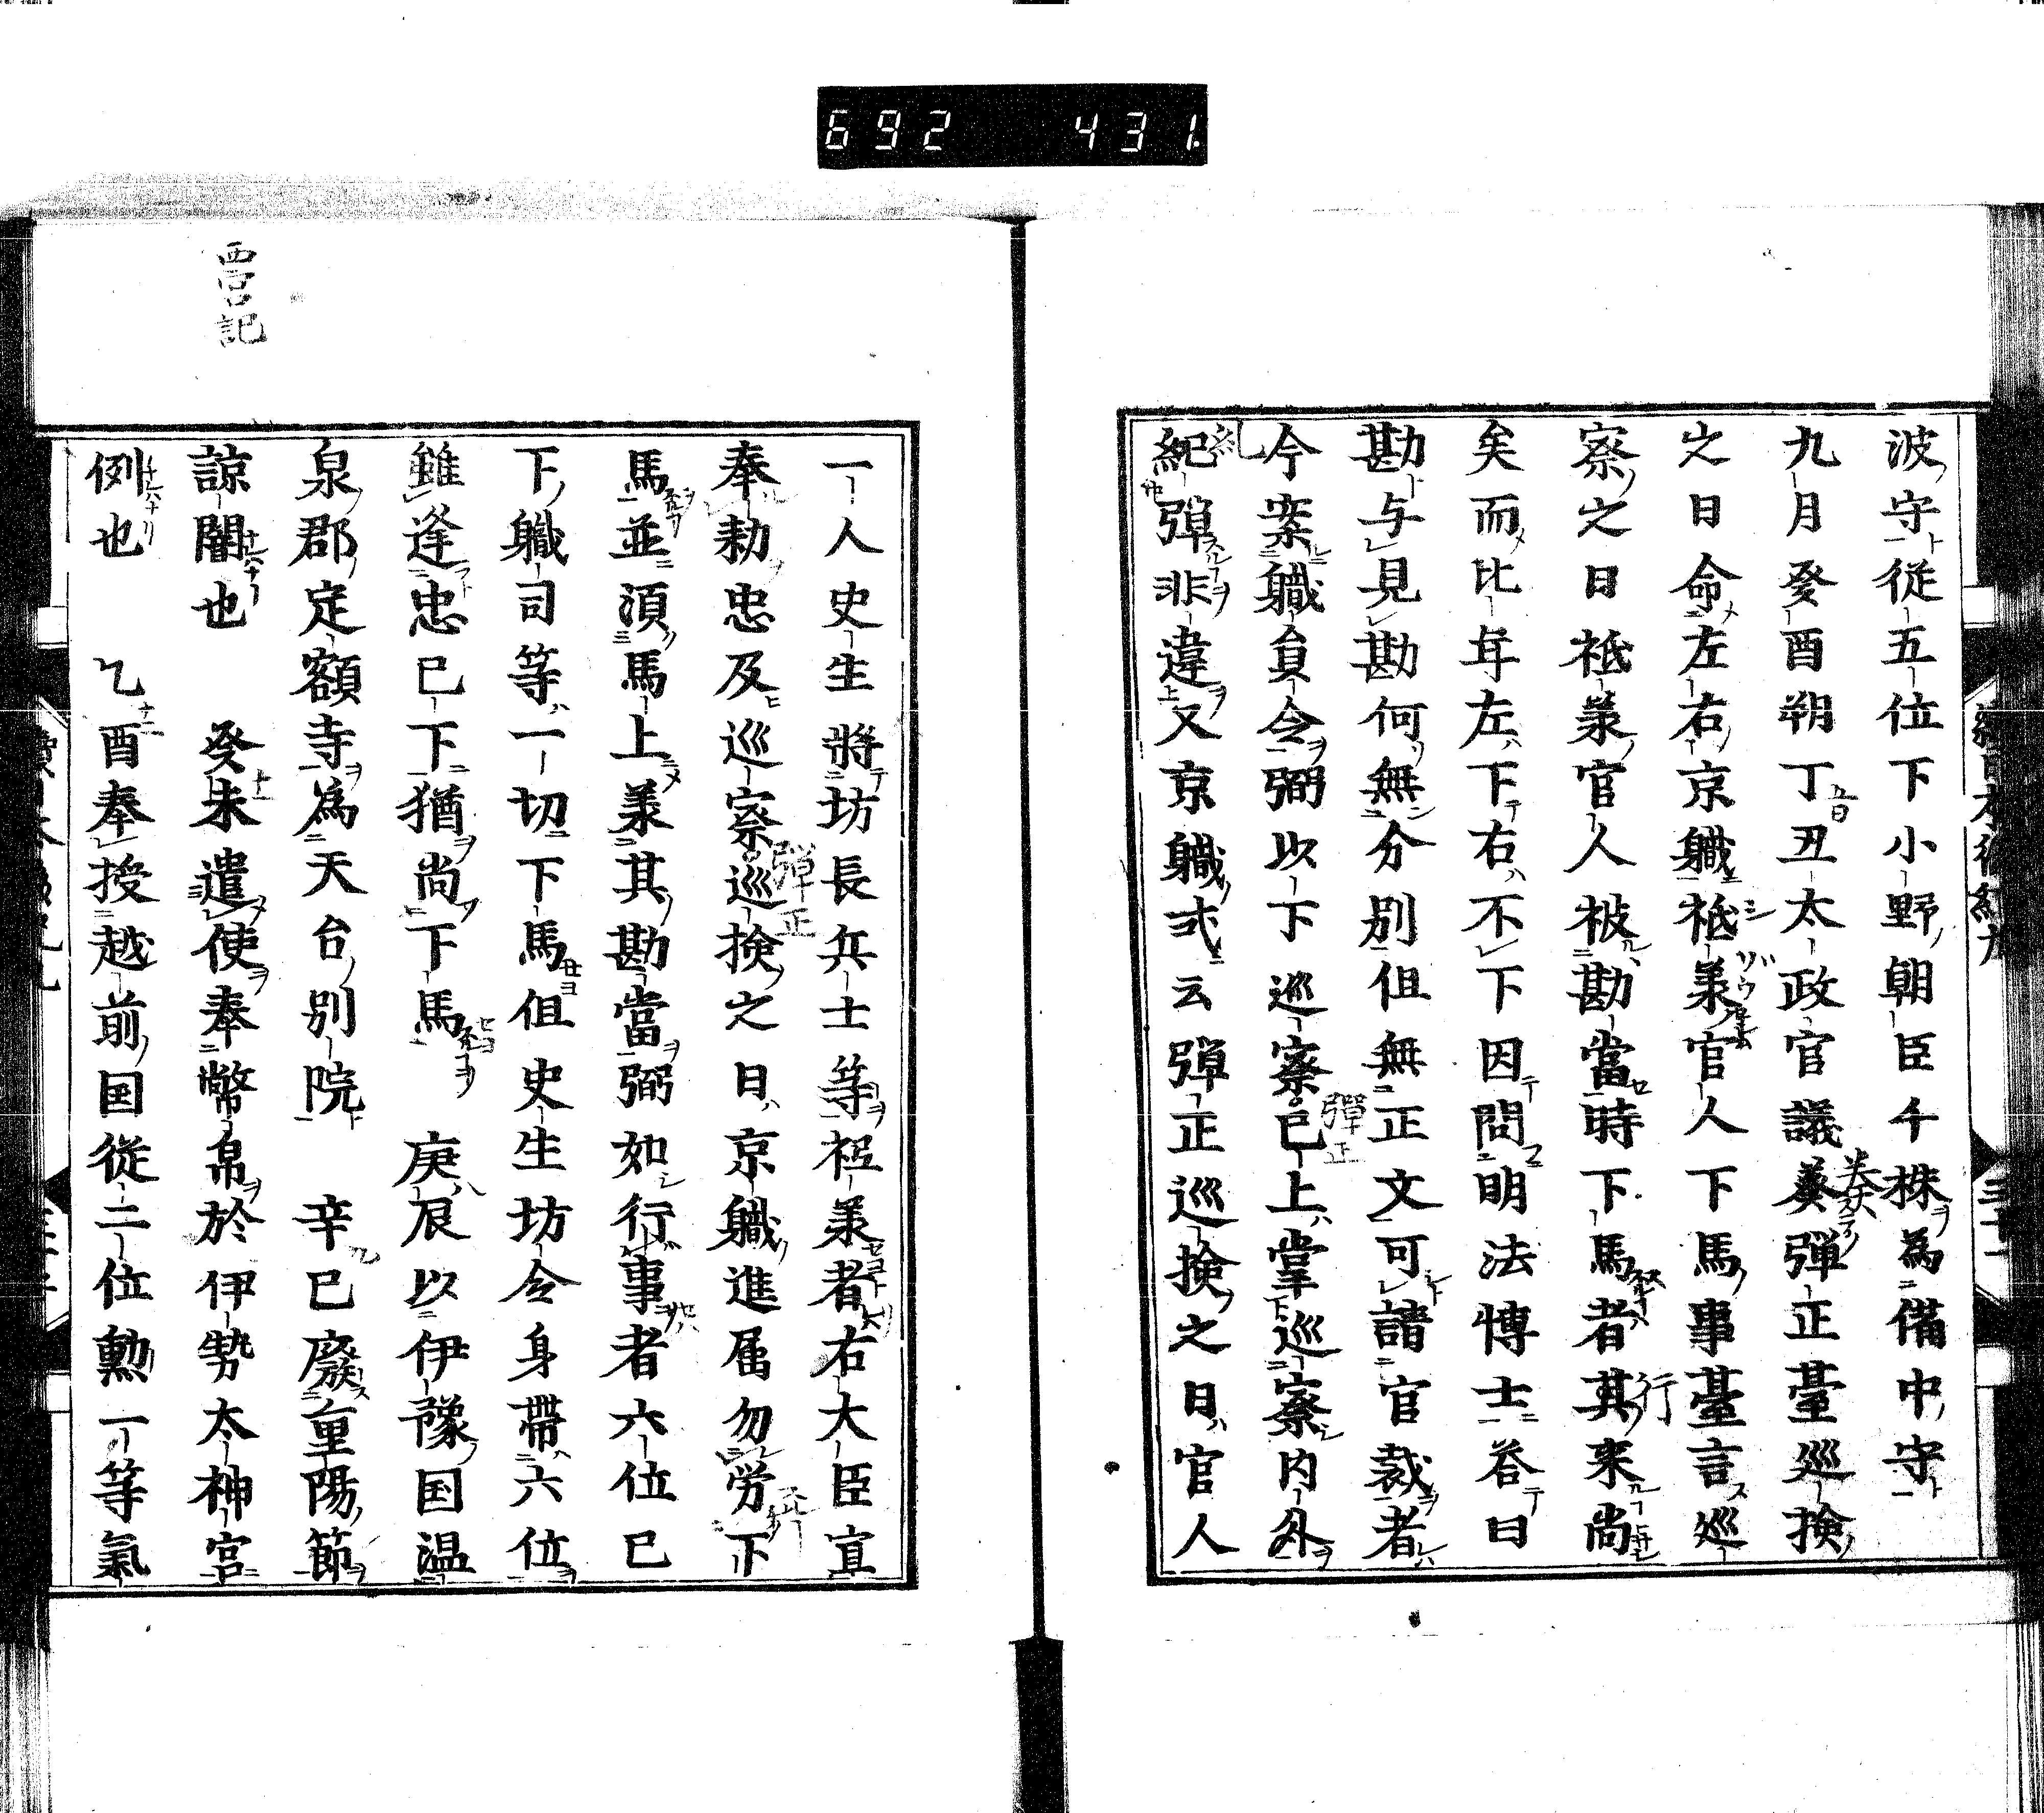 692 431
波守從五位下小野朝臣千株為備中守
九月癸酉朔丁丑太政官議奏彈正臺巡撿
之日命左右京職祗羕官人下馬事臺言巡
察之日祗羕官人被勘當時下馬者其來尚
矣而比年左下右不下因問明法博士荅曰
勘与見勘何無分別但無正文可請官裁者
今案職貟令弼以下巡察已上掌巡察內外
紀彈非違又京職式云彈正巡撿之日官人
一人史生將坊長兵士等祗羕者右大臣宣
奉勅忠及巡察巡撿之日京職進属勿勞下
馬並須馬上羕其勘當弼如行事者六位已
下職司等一切下馬但史生坊令身帶六位
雖逢忠已下猶尚下馬 庚辰以伊豫国温
泉郡定額寺為天台別院 辛巳廢重陽節
諒闇也 癸未遣使奉幣帛於伊勢太神宮
例也 乙酉奉授越前国從二位勳一等氣
西宮記